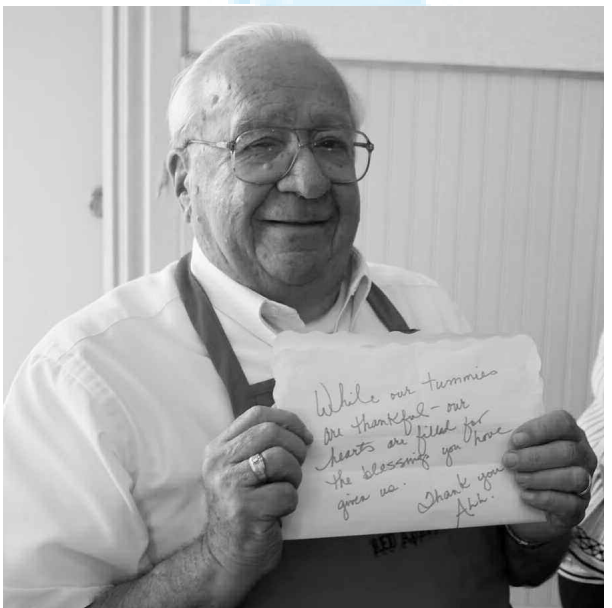 While our tummies
are thankful - our
hearts are filled for
the blessings you have
given us.
Thank you
All!
RED